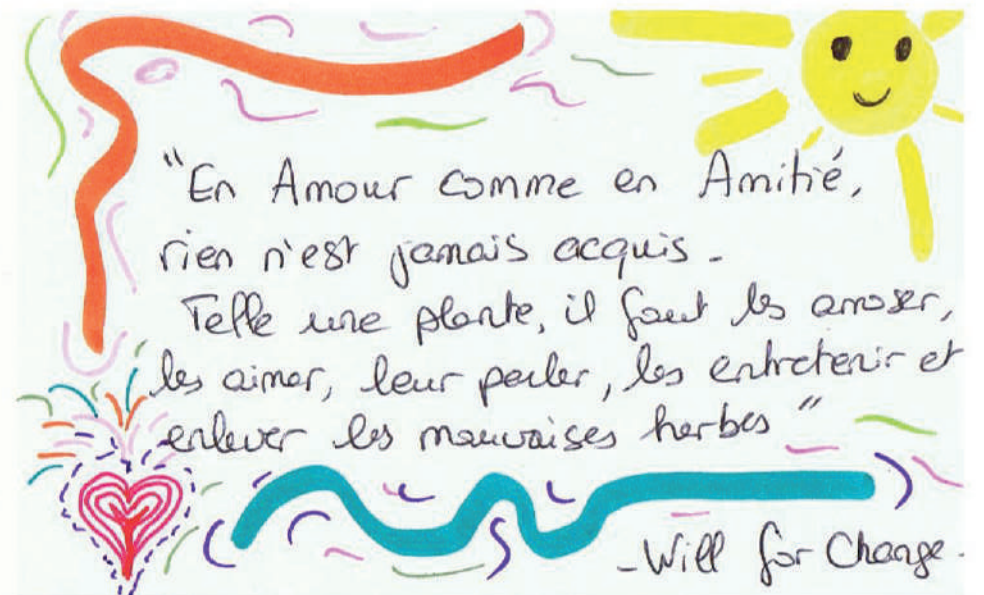 "En Amour comme en Amitié,
rien n'est jamais acquis.
Telle une plante, il faut les arroser,
les aimer, leur parler, les entretenir et
enlever les mauvaises herbes"
- Will for Change -